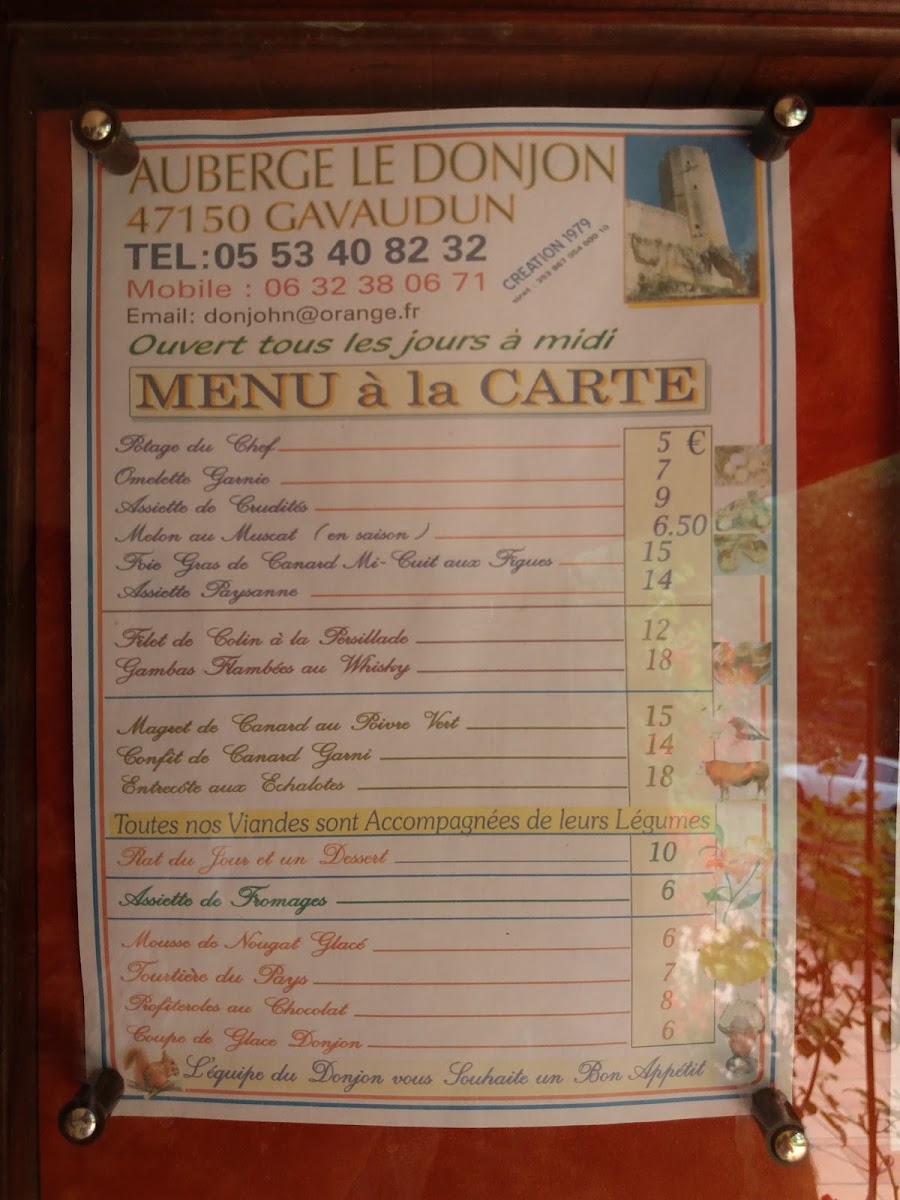 AUBERGE LE DONJON
47150 GAVAUDUN
TEL:05 53 40 82 32
CREATION 1979
Mobile : 06 32 38 06 71
Email: donjohn@orange.fr
Ouvert tous les jours à midi
MENU à la CARTE
Potage du Chef 5 €
Omelette Garnie 7
Assiette de Crudités 9
Melon au Muscat (en saison) 6.50
Foie Gras de Canard Mi-Cuit aux Figues 15
Assiette Paysanne 14
Filet de Colin à la Persillade 12
Gambas Flambées au Whisky 18
Magret de Canard au Poivre Vert 15
Confit de Canard Garni 14
Entrecôte aux Echalotes 18
Toutes nos Viandes sont Accompagnées de leurs Légumes
Plat du Jour et un Dessert 10
Assiette de Fromages 6
Mousse de Nougat Glacé 6
Tourtière du Pays 7
Profiteroles au Chocolat 8
Coupe de Glace Donjon 6
L'équipe du Donjon vous Souhaite un Bon Appétit